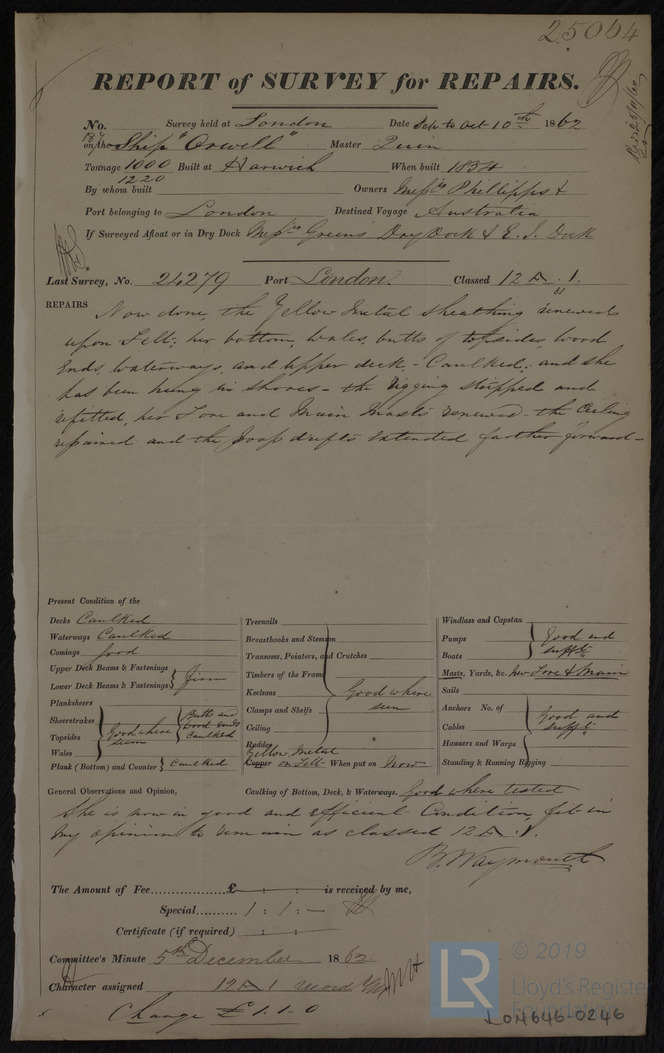 25064
REPORT of SURVEY for REPAIRS.
No. Survey held at London Date Sep to Oct 10th 1862
187 on the Ship "Orwell" Master Quin
Tonnage 1000 Built at Harwich When built 1834
1220
By whom built Owners Mess rs Phillipps &
Port belonging to London Destined Voyage Australia
If Surveyed Afloat or in Dry Dock Mess rs Greens Dry Dock & E. I. Dock
Last Survey, No. 24279 Port London. Classed 12 A. 1.
61
REPAIRS Now done, the Yellow Metal Sheathing renewed
upon Felt; her bottom, Wales, butts of topsides, wood
Ends, Waterways, and upper deck - Caulked; and she
has been hung in Shores - the rigging stripped and
refitted, her Fore and Main Masts renewed - the Ceiling
repaired and the Poop drifts extended farther forward -
Present Condition of the
Decks Caulked
Waterways Caulked
Comings Good
Upper Deck Beams & Fastenings
Lower Deck Beams & Fastenings } firm
Planksheers
Sheerstrakes
Topsides
Wales
Good where seen
Butts and wood ends caulked
Plank (Bottom) and Counter } Caulked
Treenails
Breasthooks and Stemson
Transoms, Pointers, and Crutches
Timbers of the Frame
Keelsons
Clamps and Shelfs
Ceiling
Rudder
Good where seen
Yellow Metal
Copper on Felt When put on Now
Windlass and Capstan
Pumps
Boats
Good and sufft
Masts, Yards, &c. New Fore & Main
Sails
Anchors No. of
Cables
Good and sufft
Hawsers and Warps
Standing & Running Rigging
General Observations and Opinion, Caulking of Bottom, Deck, & Waterways. Good where tested
She is now in good and efficient Condition, fit in
my opinion to remain as classed 12 A. 1.
B. Waymouth
The Amount of Fee............... £ : : is received by me,
Special.......... 1 : 1 : -
Certificate (if required) : :
Committee's Minute 5th December 1862
Character assigned 12 A 1
Change £ 1. 1. 0
© 2019
LR
Lloyd's Register
Foundation
LON646-0246